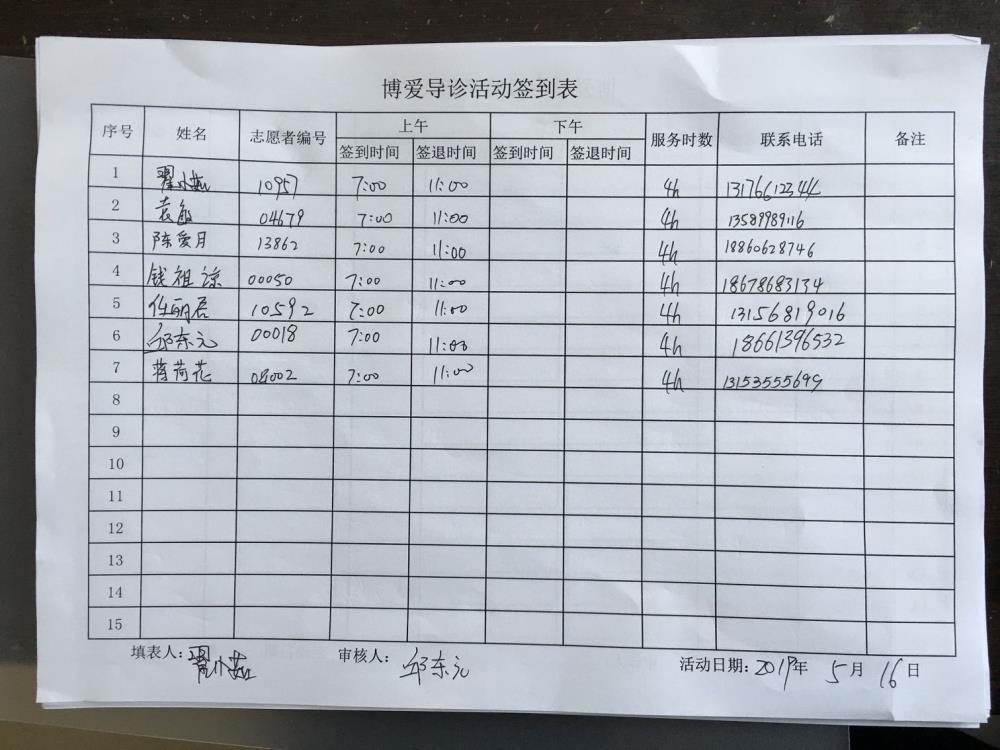 博爱导诊活动签到表
序号 姓名 志愿者编号 上午 下午 服务时数 联系电话 备注
签到时间 签退时间 签到时间 签退时间
1 翟小燕 10957 7:00 11:00 4h
2 袁敏 04679 7:00 11:00 4h 13589989116
3 陈爱月 13862 7:00 11:00 4h 18860628746
4 钱祖谅 00050 7:00 11:00 4h 18678683134
5 任丽君 10592 7:00 11:00 4h 13156819016
6 邱东元 00018 7:00 11:00 4h 18661396532
7 蒋荷花 08002 7:00 11:00 4h 13153555699
8
9
10
11
12
13
14
15
填表人:翟小燕 审核人:邱东元 活动日期:2019年 5月 16日